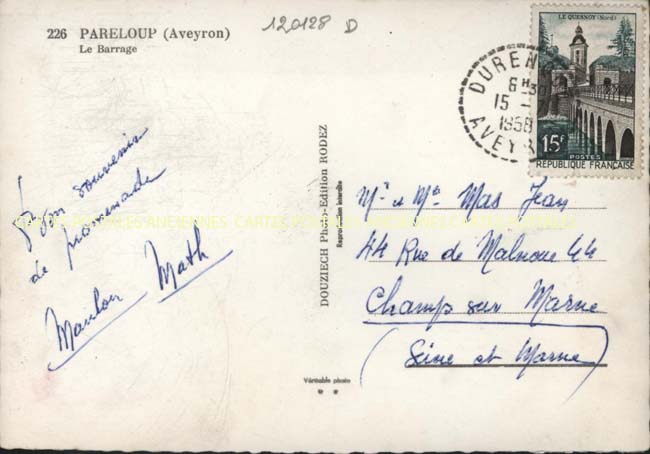 226 PARELOUP (Aveyron)
Le Barrage
120128 D
LE QUESNOY (Nord)
15F
POSTES
REPUBLIQUE FRANÇAISE
6H30
15 -
1958
AVEY
Bon souvenir
de promenade
Math
DOUZIECH Photo-Edition RODEZ
Reproduction interdite
Véritable photo
Mr et Me Mas Jean
44 Rue de Malnoue 44
Champs sur Marne
(Seine et Marne)
CARTES POSTALES ANCIENNES